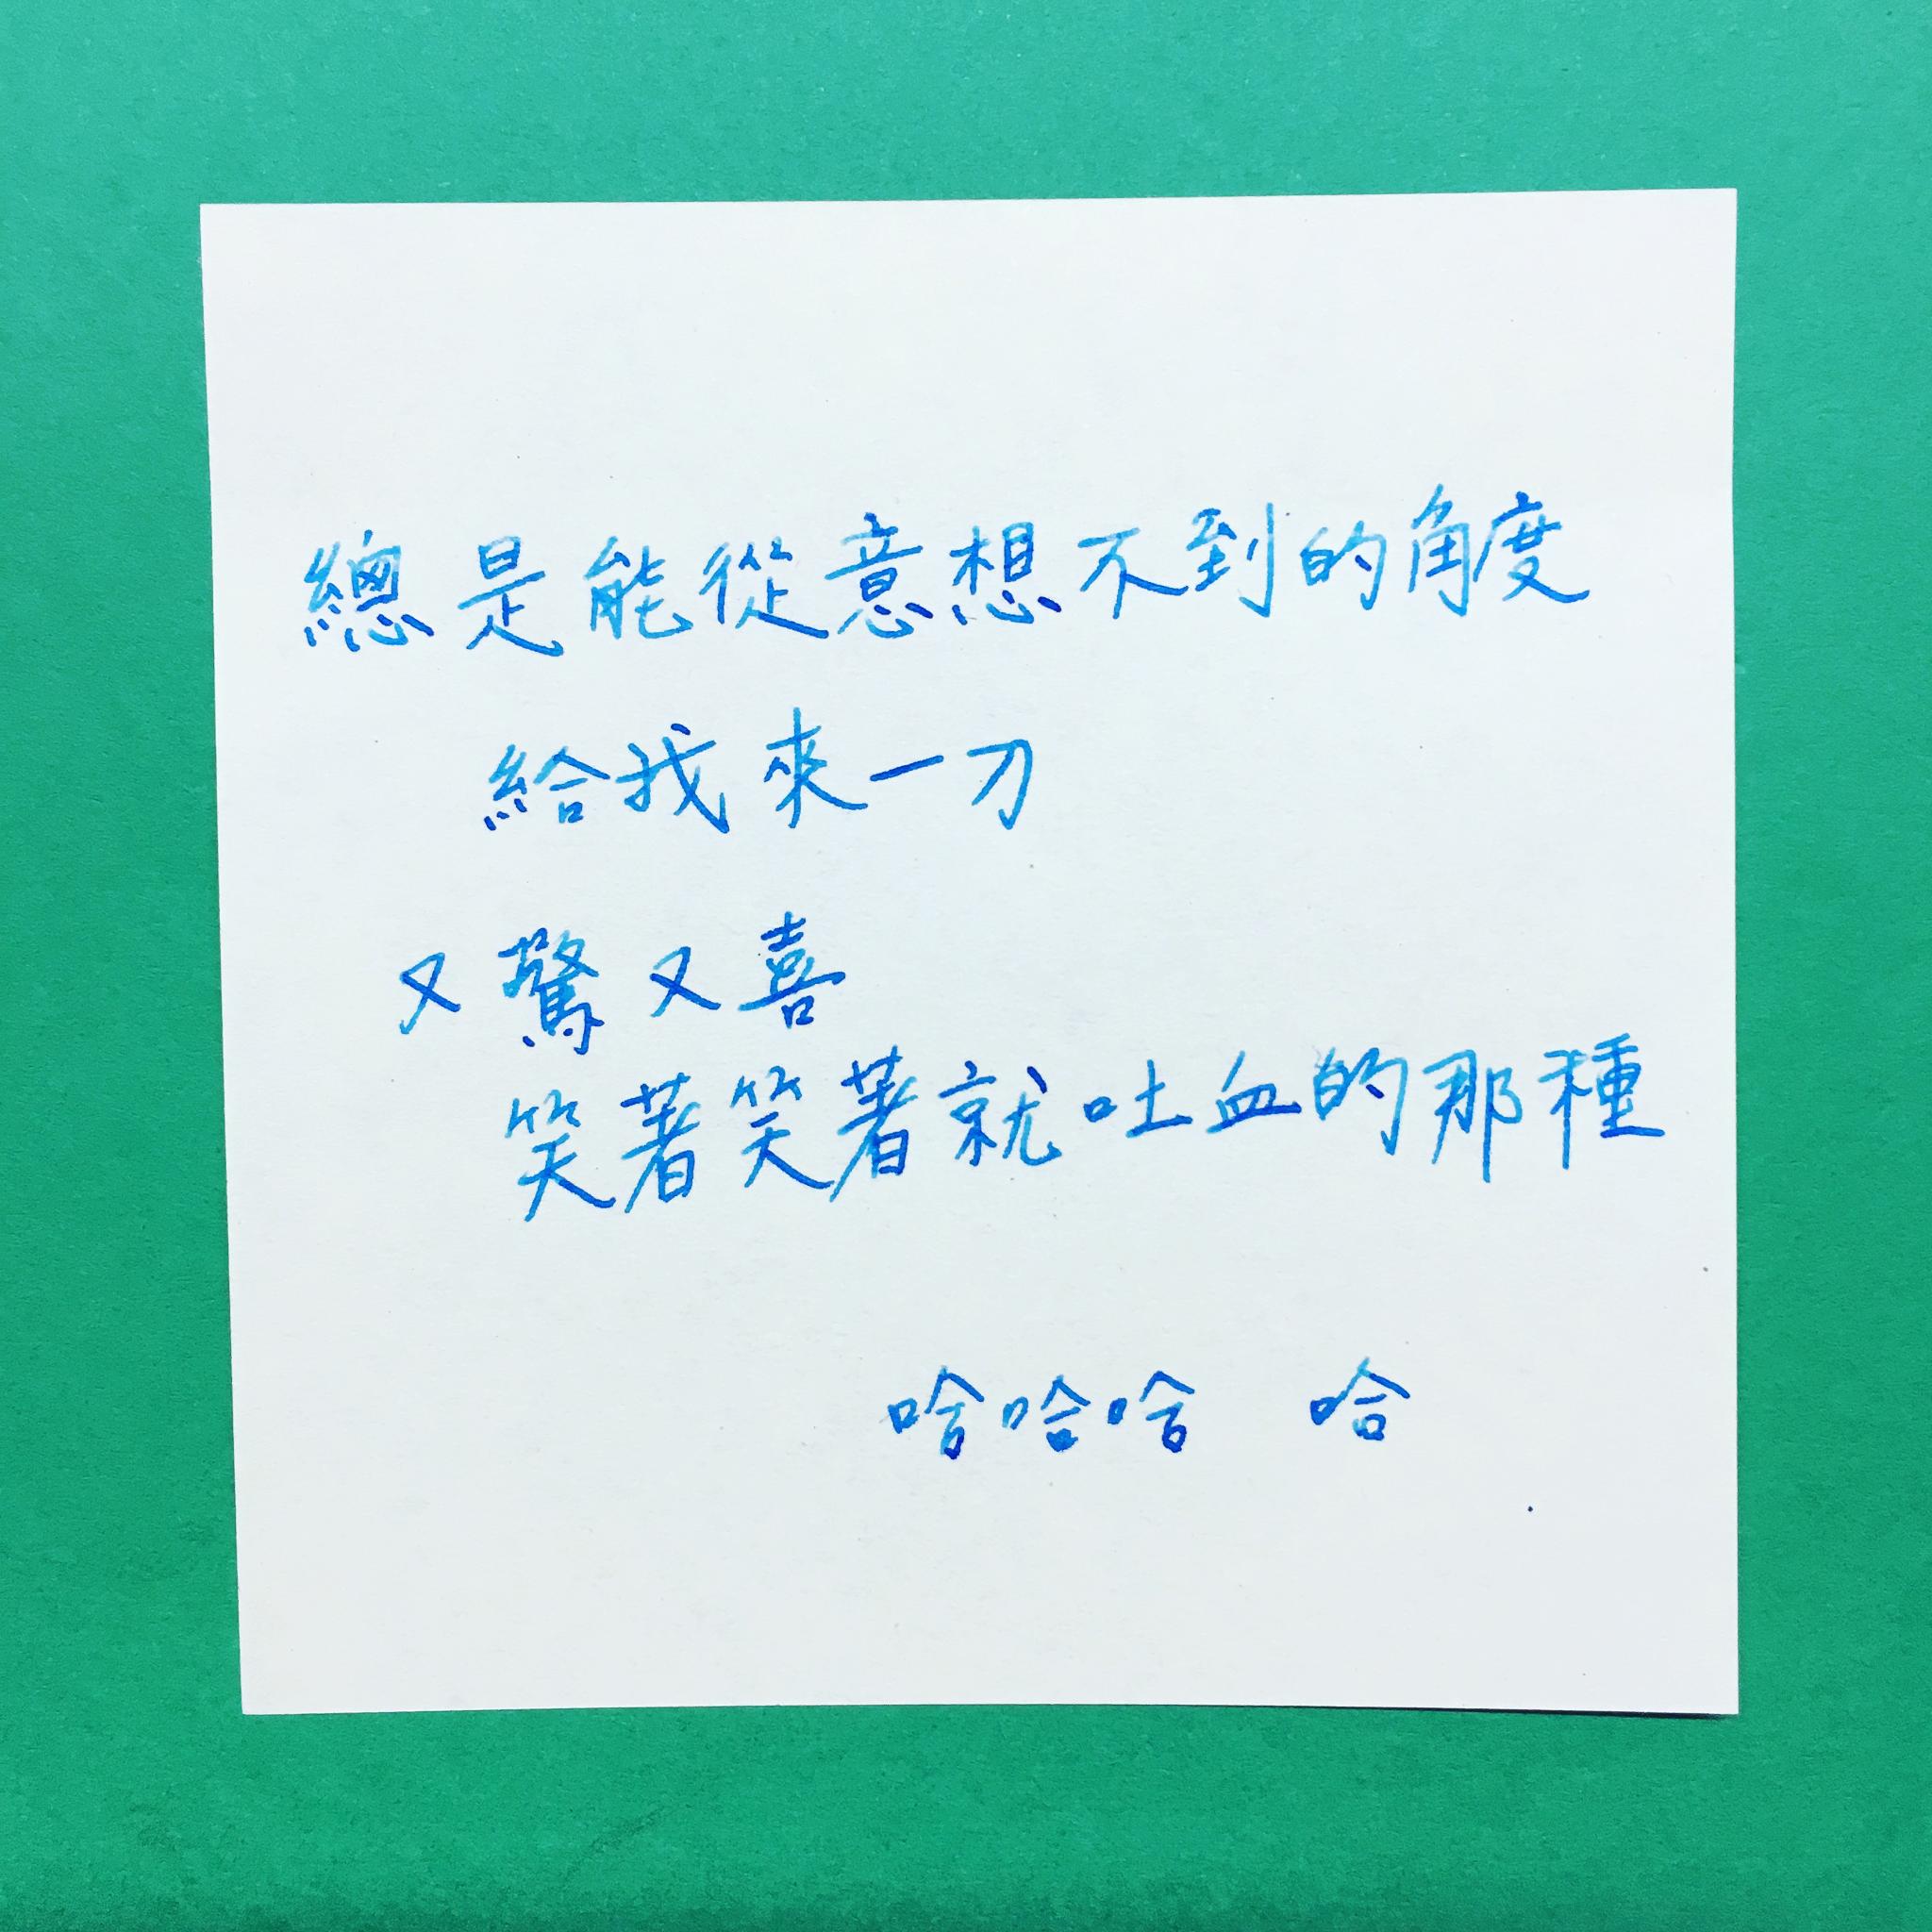 總是能從意想不到的角度
給我來一刀
又驚又喜
笑著笑著就吐血的那種
哈哈哈 哈